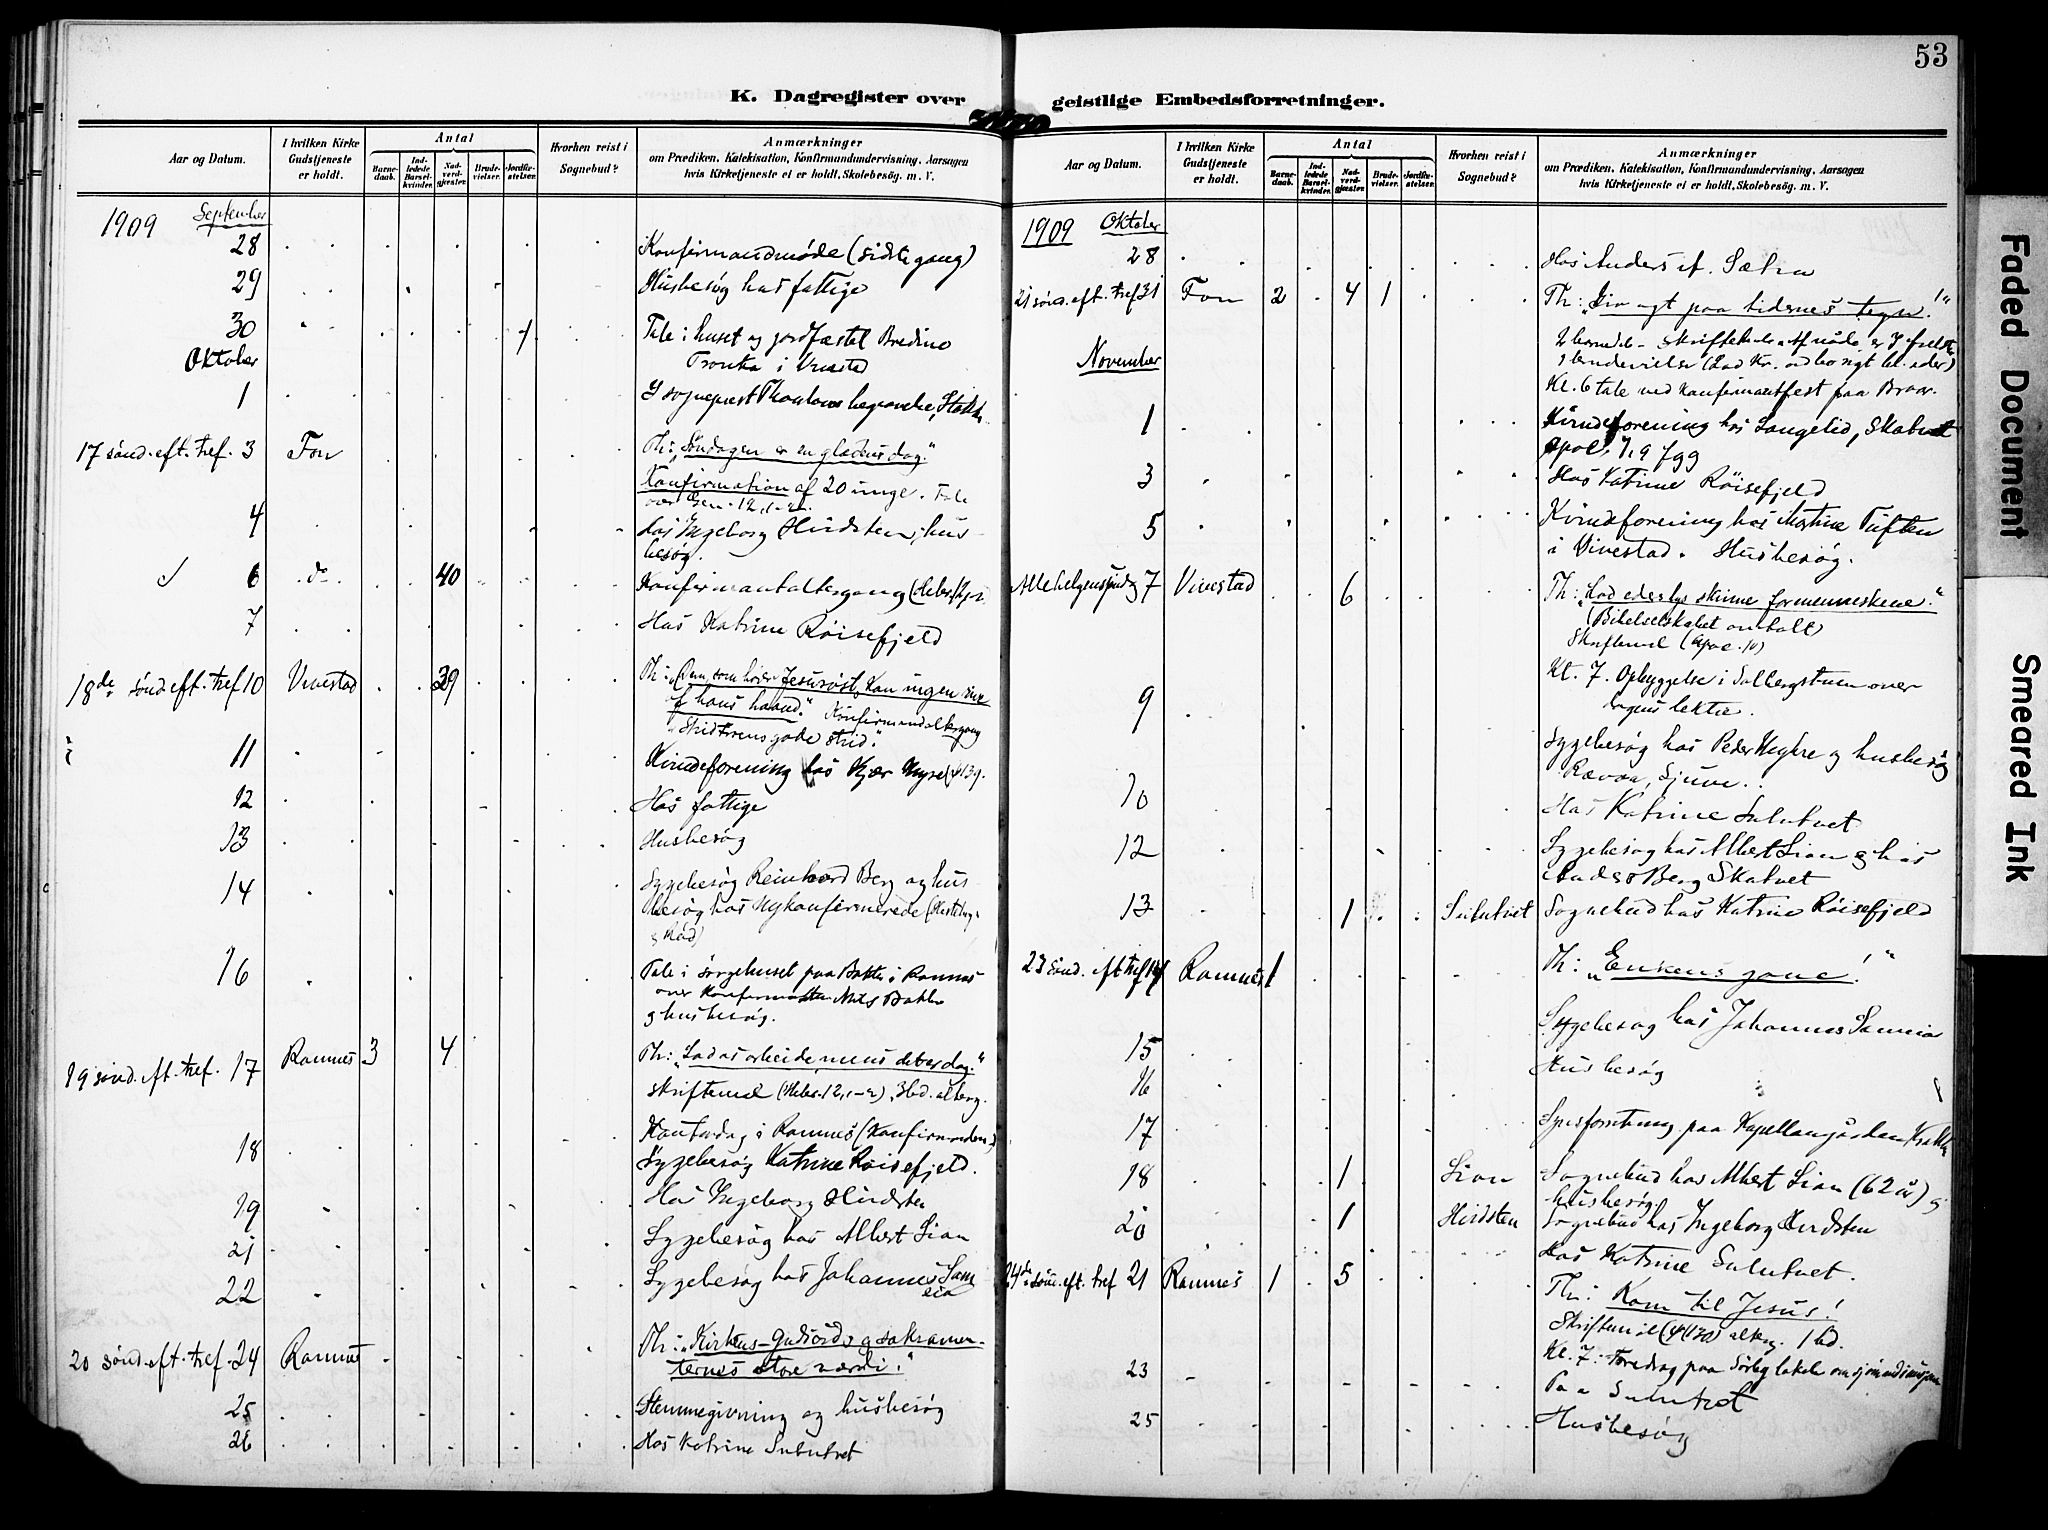 53
K. Dagregister over geistlige Embedsforretninger.
Aar og Datum.
I hvilken Kirke Gudstjeneste er holdt.
Antal
Barnedaab.
Indledede Barselkvinder.
Nadverdgjester.
Brudevielser.
Jordfæstelser.
Hvorhen reist i Sognebud?
Anmærkninger
om Prædiken, Katekisation, Konfirmandundervisning, Aarsagen
hvis Kirketjeneste ei er holdt, Skolebesög. m. V.
1909 September
28 Konfirmandmøde (sidste gang)
29 Husbesøg hos fattige
30 1 Tale i huset og jordfæstet Bredine
i Vivestad
Oktober
1 I sogneprest begravelse,
17 sönd. eft. tref. 3 Fon Th: „Söndagen er en glædens dag"
Konfirmation af 20 unge. Tale
over Gen. 12, 1-2.
4 Hos Ingeborg Hirdsten, hus
besøg.
6 do 40 Konfirmantaltergang (Hebr.
7 Hos Katrine Röisefjeld
18de sönd. eft. tref 10 Vivestad 39 Th: „Den, som hører Jesu röst, kan ingen rive
af hans haand." Konfirmandaltergang
„Strid troens gode strid."
11 Kvindeforening hos Kjær Myre
12 Hos fattige
13 Husbesøg
14 Sygebesøg Reinhard Berg og hus
besøg hos Nykonfirmerede
16 Tale i Sörgehuset paa Bakke i Ramnes
over Konfirmanten Nils Bakke
og husbesøg.
19 sönd. eft. tref. 17 Ramnes 3 4 Th: „Lad os arbeide, mens det er dag."
skriftemaal (Hebr. 12, 1-2), 3bd. alterg.
18 Kontordag i Ramnes (Konfirmanden
Sygebesøg Katrine Röisefjeld.
19 Hos Ingeborg Hirdsten
21 Sygebesøg hos Albert Lian
22 Sygebesøg hos Johannes
20 sönd. eft. tref. 24 Ramnes Th: „Kirkens - Guds ords og sakramen-
ternes store værdi."
25 Stemmegivning og husbesøg
26 Hos Katrine
Aar og Datum.
I hvilken Kirke Gudstjeneste er holdt.
Antal
Barnedaab.
Indledede Barselkvinder.
Nadverdgjester.
Brudevielser.
Jordfæstelser.
Hvorhen reist i Sognebud?
Anmærkninger
om Prædiken, Katekisation, Konfirmandundervisning, Aarsagen
hvis Kirketjeneste ei er holdt, Skolebesög. m. V.
1909 Oktober
28 Hos Anders Sætra
21 sönd. eft. tref 31 Fon 2 4 1 Th: „Giv agt paa tidernes tegn!"
Kl. 6 tale ved Konfirmantfest paa
November
1 Kvindeforening hos Langelid, Skatvet
3 Hos Katrine Röisefjeld
5 Kvindeforening hos Martine Tuften
i Vivestad. Husbesøg.
Allehelgenssönd 7 Vivestad 6 Th: „Lad eders lys skinne for menneskene."
(Bibelselskabet omtalt)
9 Kl. 7. Opbyggelse i Solbergstuen over
dagens tekter.
Sygebesøg hos Peder Myhre og husbesøg
10 Hos Katrine
12 Sygebesøg hos Albert Lian og hos
Anders Berg Skatvet
13 1 Sognebud hos Katrine Röisefjeld
23 sönd. eft tref 14 Ramnes 1 Th: „Enkens gave!"
15 Sygebesøg hos Johannes
16 Husbesøg
17 paa Kapellangården
18 1 Lian Sognebud hos Albert Lian (62 år) og
husbesøg
20 1 Hirdsten Sognebud hos Ingeborg Hirdsten
Hos Katrine
24de sönd. eft. tref 21 Ramnes 1 5 Th: Kom til Jesus!
Skriftemål 1bd.
Kl. 7: Foredrag paa lokale om
23 Paa
25 Husbesøg
Faded Document
Smeared Ink